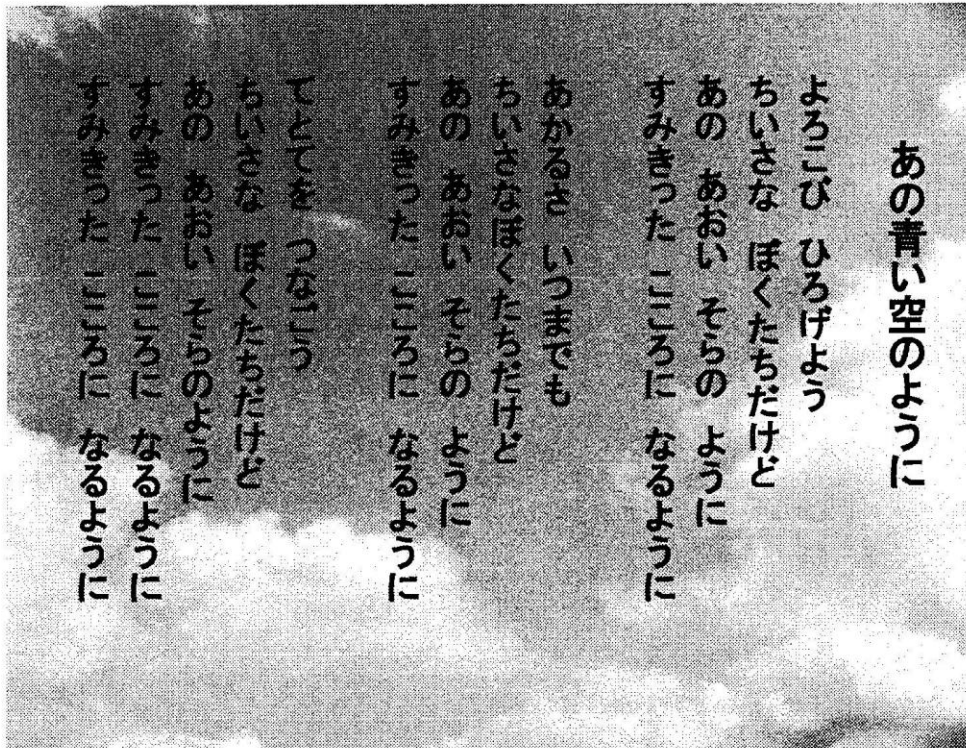 あの青い空のように
よろこび　ひろげよう
ちいさな　ぼくたちだけど
あの　あおい　そらの　ように
すみきった　こころに　なるように
あかるさ　いつまでも
ちいさなぼくたちだけど
あの　あおい　そらの　ように
すみきった　こころに　なるように
てとてを　つなごう
ちいさな　ぼくたちだけど
あの　あおい　そらのように
すみきった　こころに　なるように
すみきった　こころに　なるように